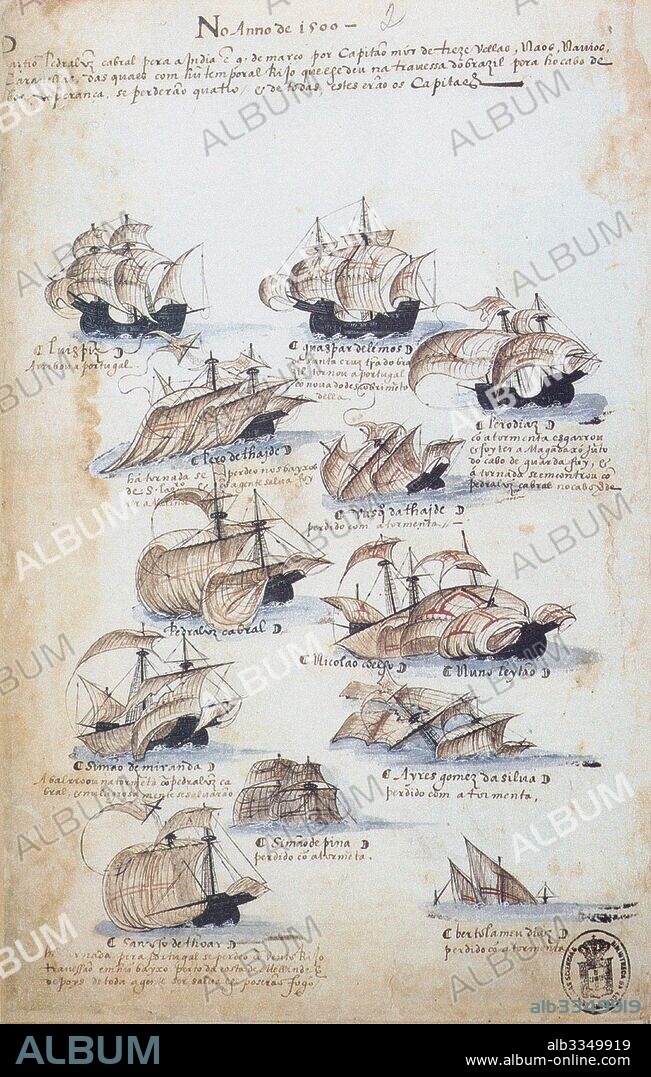 No Anno de 1500 — 2
Partio Pedralvz cabral pera a India ẽ 9. de março por Capitão mór de treze Vellas, Naos, Navios,
das quaes com hũ temporal Rijo que lhe deu na travessa do brazil pera ho cabo de
boa esperança, se perderão quatro, e de todas estes erão os Capitaẽs
Luis piz
Arribou a portugal.
guaspar de lemos
de santa cruz trã do bra
sil tornou a portugal
cõ nova do descobrimẽto
della.
Pero diaz
cõ a tormenta esgarrou
e foy ter a Magadaxó jũto
do cabo de guardafuy, e
á tornada se encontrou cõ
pedralvz cabral no cabo Vde
Pero de thajde
há tornada se perdeo nos bayxos
de S. Lazº e a gente salva foy
Vasq̃ dathajde
perdido com a tormenta.
Pedralvz cabral
Nicolao coelho
Nuno leytão
Simão de miranda
Abalrroou na tormẽta cõ pedralvz ca
bral, e milagrosamente se salvarão
Ayres gomez da silva
perdido com a tormenta,
Simão de pina
perdido cõ a tormẽta.
Sancho de thoar
tornada pera Portugal se perdeo cõ Vento Rijo
travessão em hũ bayxo perto da costa de Melinde, e
depoys de toda a gente ser salva lhe poserão fogo
bertolameu diaz
perdido cõ a tormenta
ALBUM
alb3349919
ALBUM
alb3349919
album-online.com